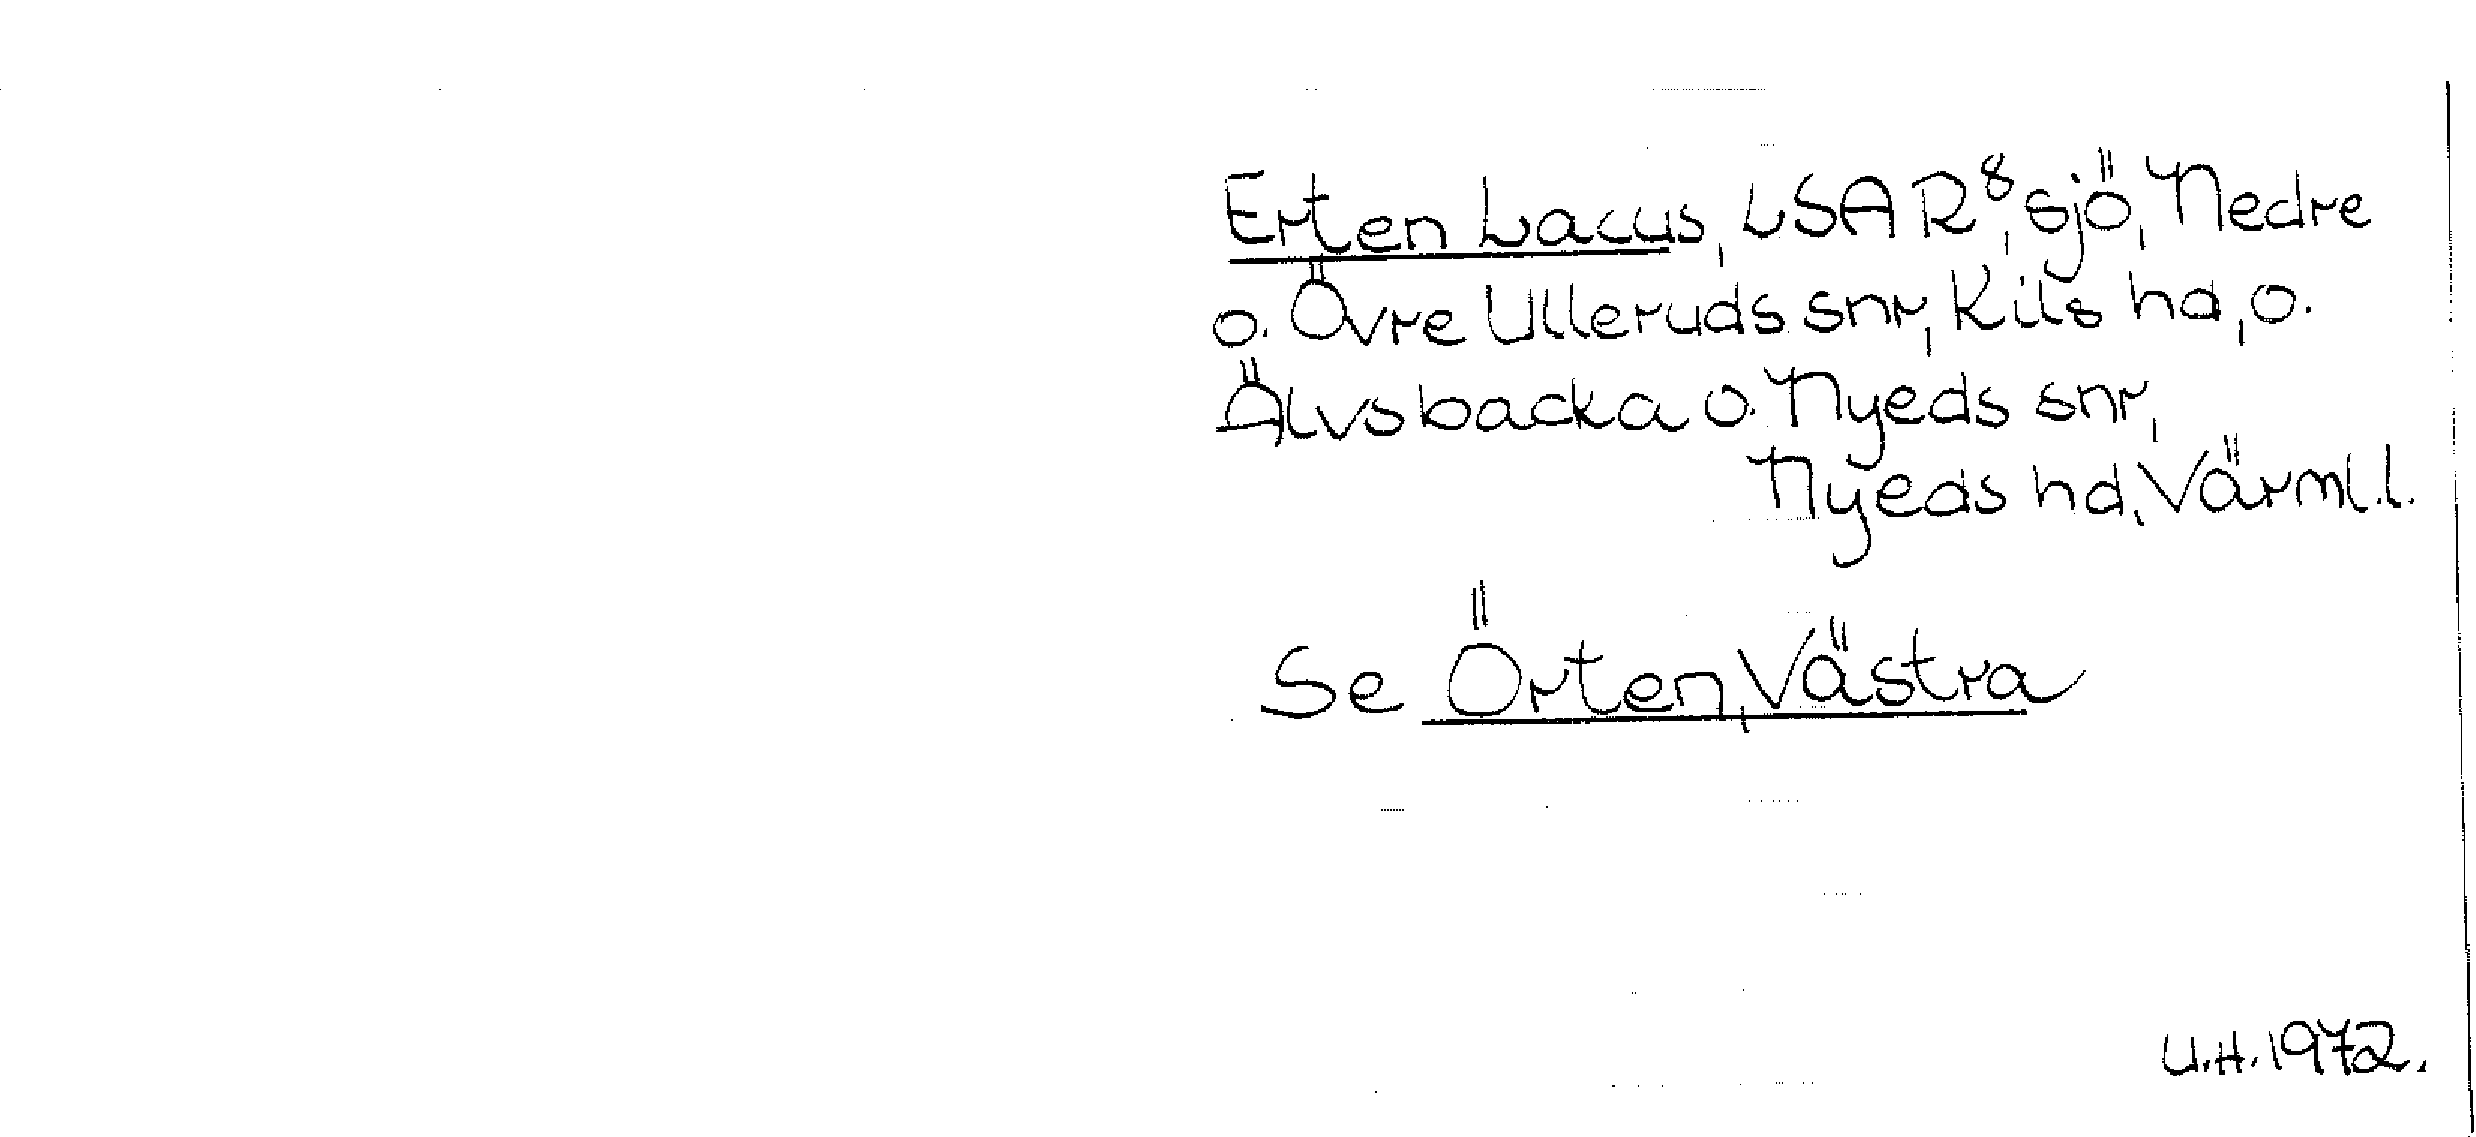 Erten Lacus, LSAR⁸, sjö, Nedre
o. Övre Ulleruds snr, Kils hd, o.
Älvsbacka o. Nyeds snr,
Nyeds hd, Värml.l.
Se Örten, Västra
U.H. 1972.